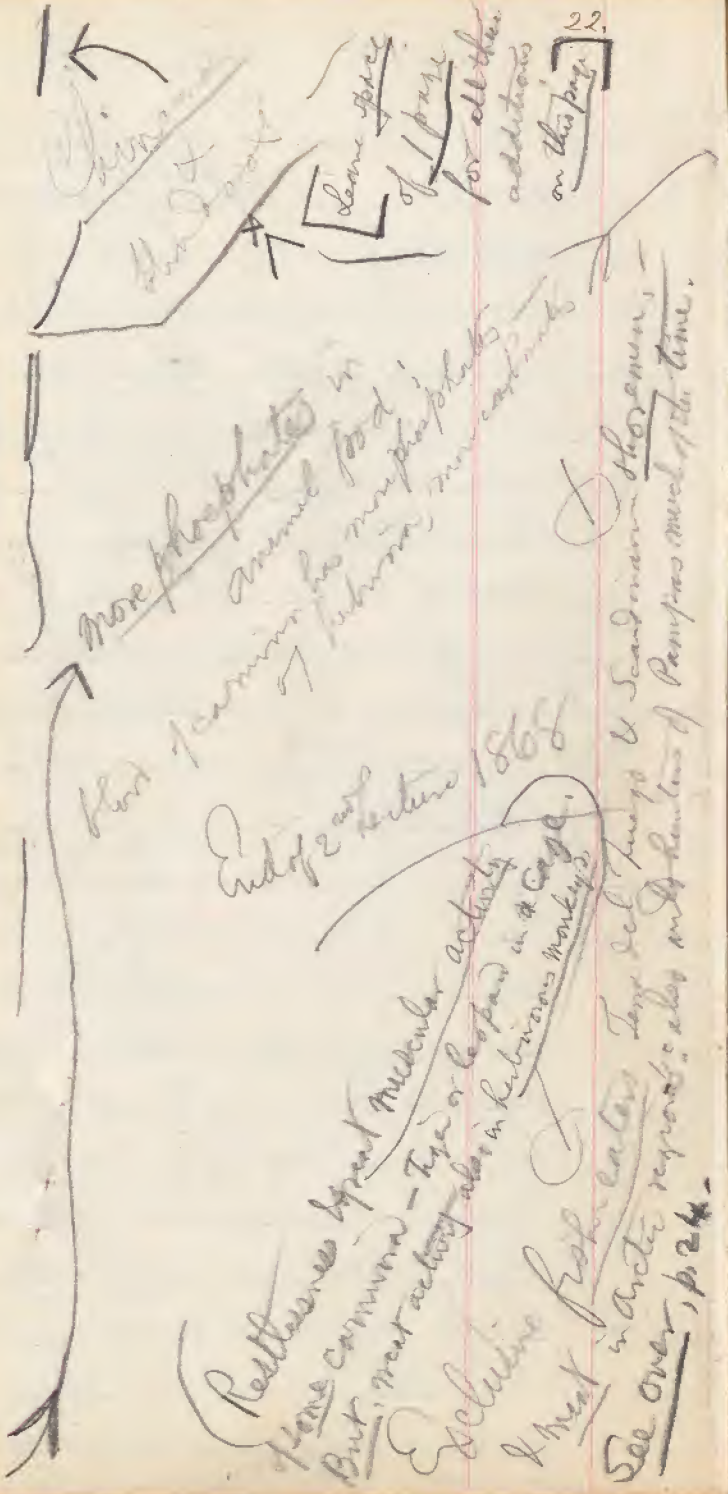 22.
[Leave space
of 1 page
for all these
additions
on this page]
&
More phosphates in
animal food;
blood of carnivora has more phosphates –
of herbivora, more carbonates
End of 2nd Lecture 1868
(Restlessness & great muscular activity
of some carnivora – Tiger or leopard in a cage.
But, great activity also in herbivorous monkeys.
Exclusive fish eaters Terra del Fuego & Scandinavian shoremen, –
& meat in arctic regions: also hunters of Pampas much of their time.
See over, p. 24.